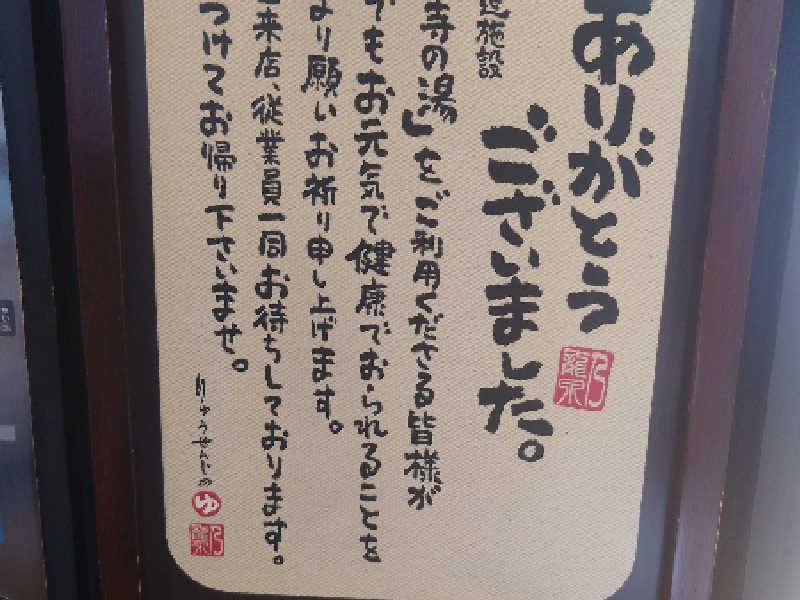 ありがとう
ございました。
施設
寺の湯」をご利用くださる皆様が
でもお元気で健康でおられることを
より願いお祈り申し上げます。
来店、従業員一同お待ちしております。
つけてお帰り下さいませ。
りゅうせんじの
ゆ